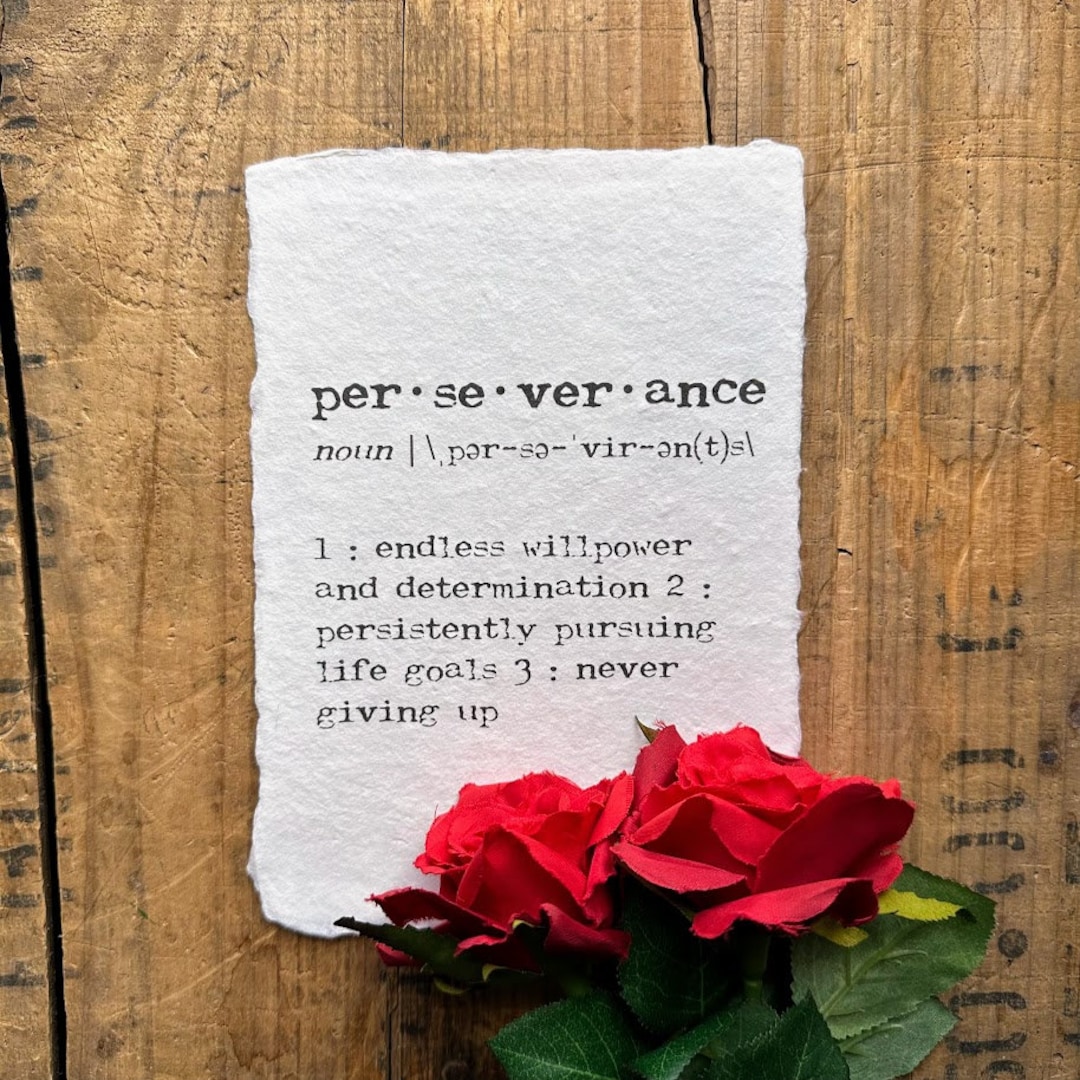 per·se·ver·ance
noun | \ˌpər-sə-ˈvir-ən(t)s\
1 : endless willpower
and determination 2 :
persistently pursuing
life goals 3 : never
giving up